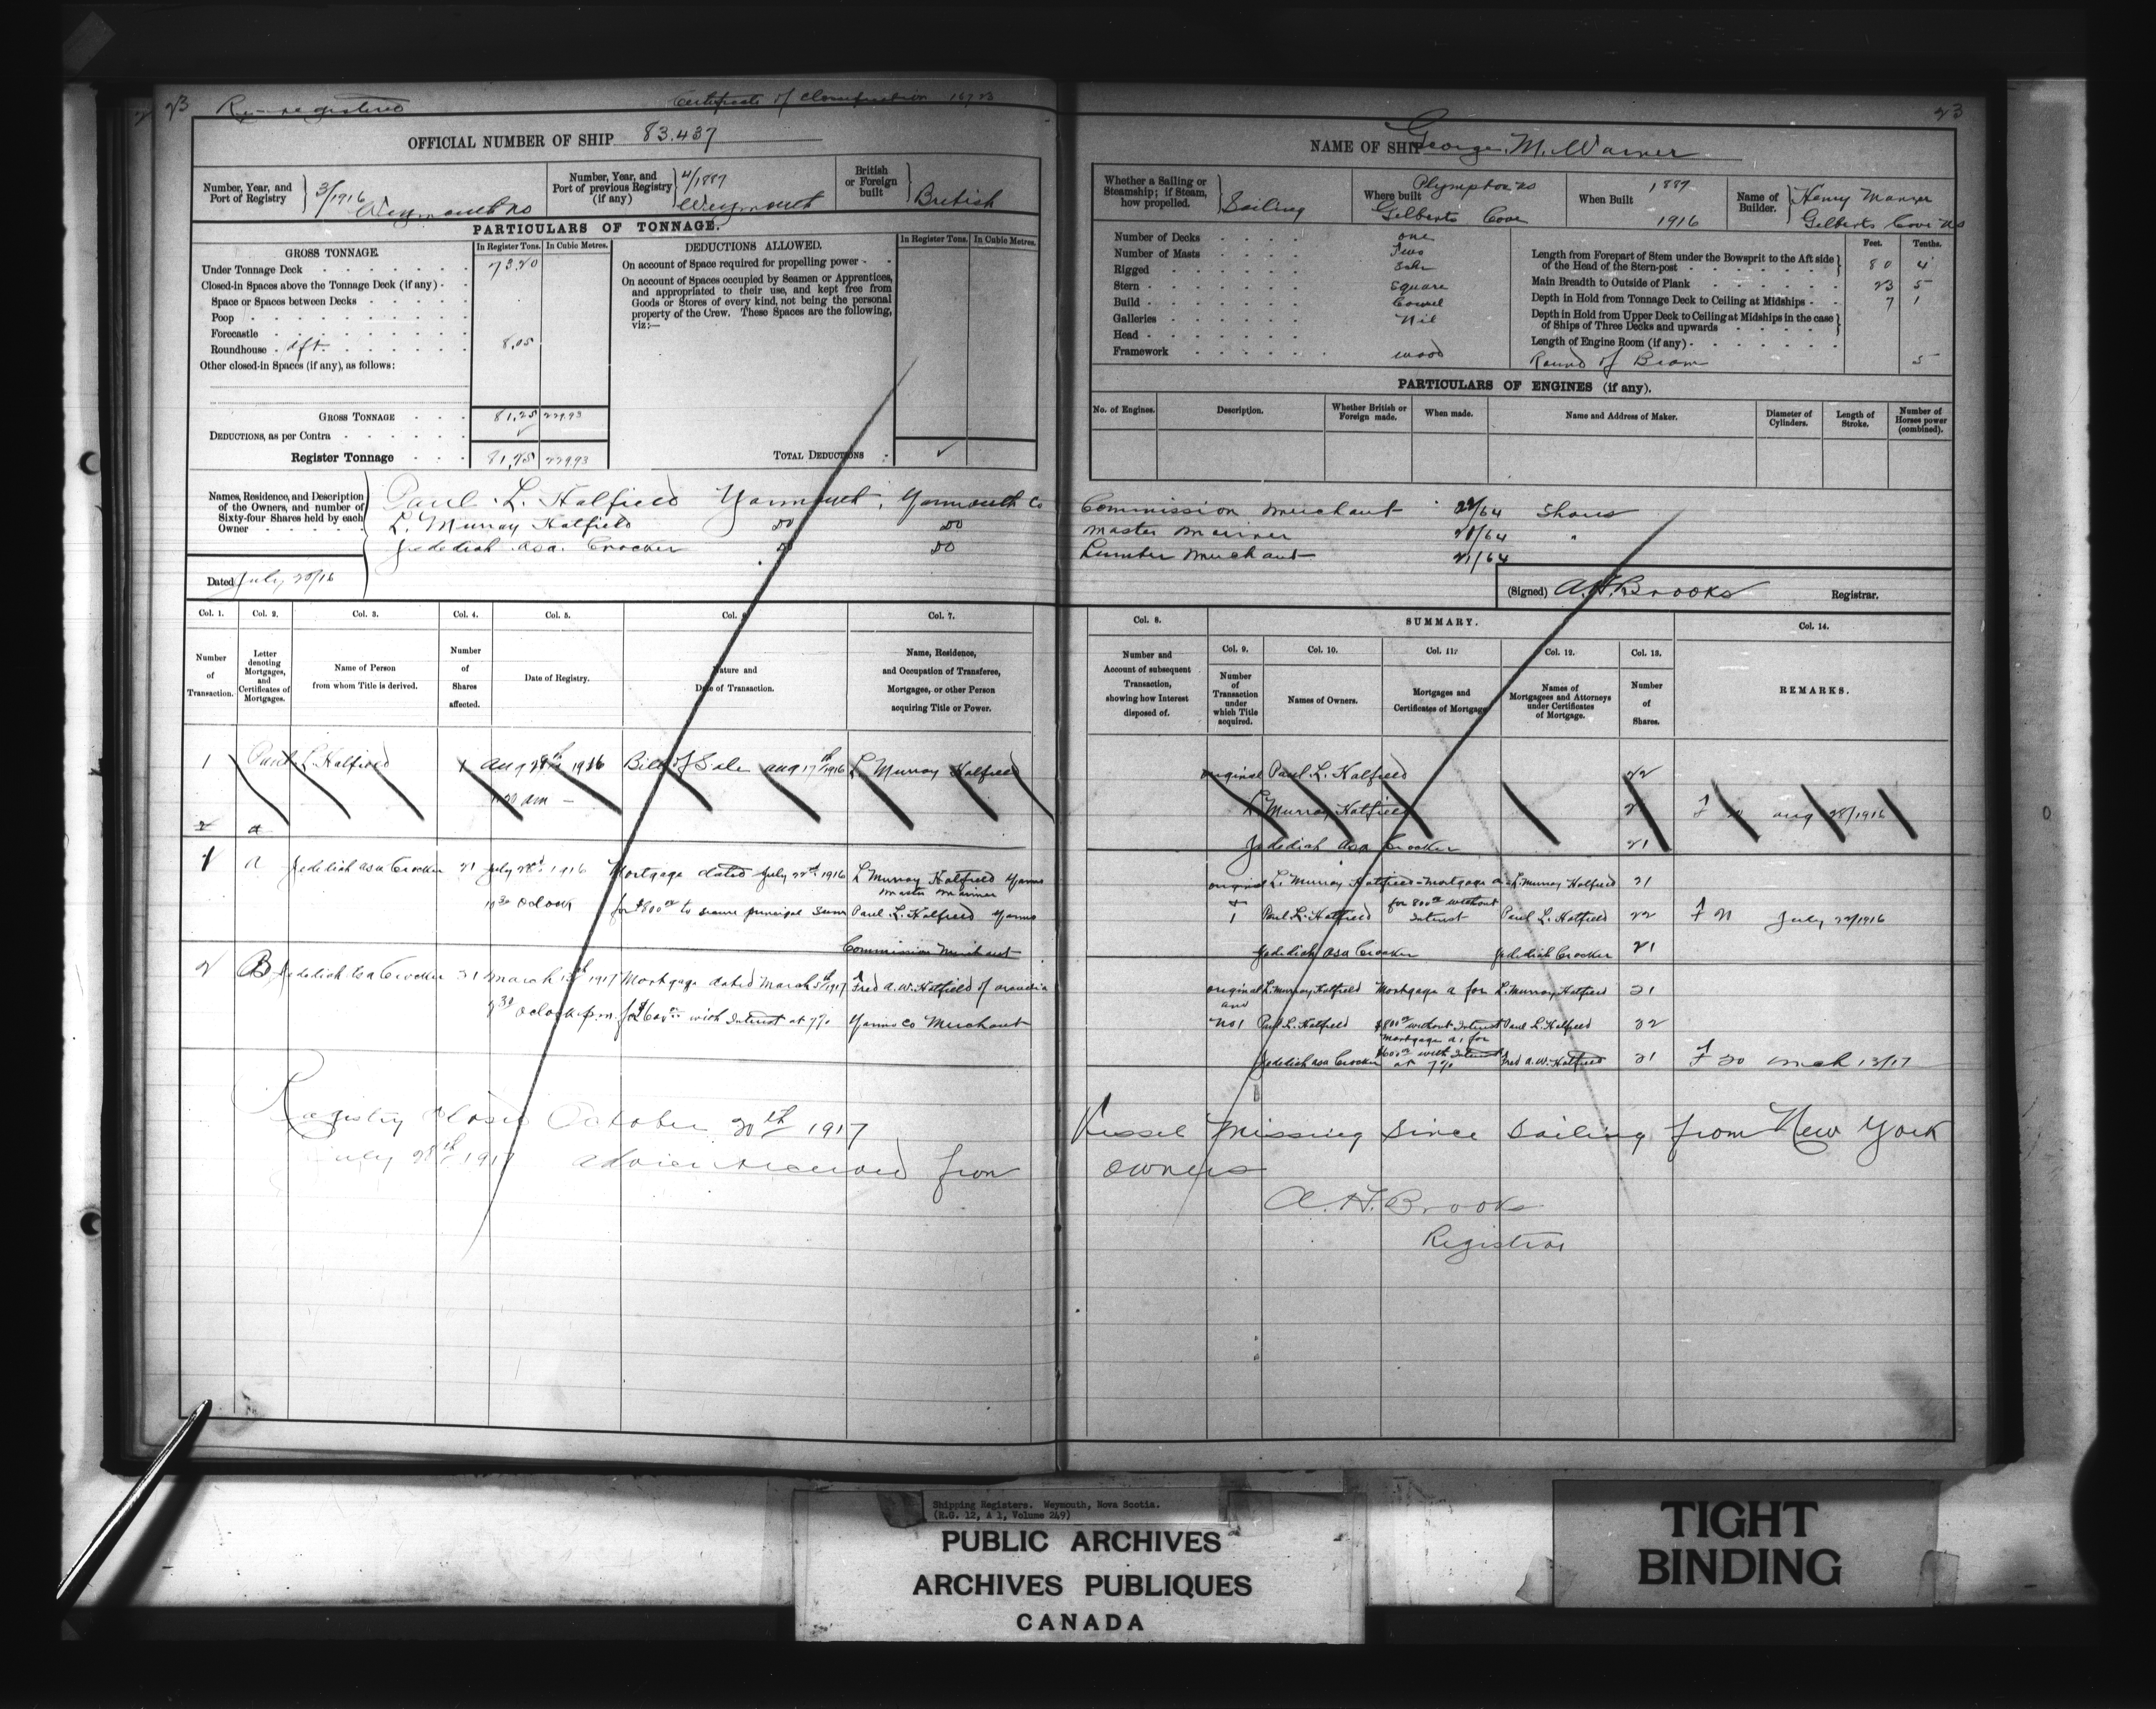 23 Re-registered
Certificate of Classification 16723
23
OFFICIAL NUMBER OF SHIP 83.437
NAME OF SHIP George M. Warner
Number, Year, and Port of Registry 3/1916 Weymouth NS
Number, Year, and Port of previous Registry (if any) 4/1887 Weymouth
British or Foreign built British
Whether a Sailing or Steamship; if Steam, how propelled. Sailing
Where built Plympton NS Gilberts Cove
When Built 1887 1916
Name of Builder. Henry Gilberts Cove NS
PARTICULARS OF TONNAGE.
GROSS TONNAGE.
In Register Tons. In Cubic Metres.
Under Tonnage Deck 73.20
Closed-in Spaces above the Tonnage Deck (if any)
Space or Spaces between Decks
Poop
Forecastle
Roundhouse aft. 8.05
Other closed-in Spaces (if any), as follows:
GROSS TONNAGE 81,25 229.93
DEDUCTIONS, as per Contra
Register Tonnage 81,25 229.93
DEDUCTIONS ALLOWED.
In Register Tons. In Cubic Metres.
On account of Space required for propelling power
On account of Spaces occupied by Seamen or Apprentices,
and appropriated to their use, and kept free from
Goods or Stores of every kind, not being the personal
property of the Crew. These Spaces are the following,
viz:—
TOTAL DEDUCTIONS
Number of Decks one
Number of Masts Two
Rigged Schr
Stern Square
Build Carvel
Galleries Nil
Head
Framework wood
Feet. Tenths.
Length from Forepart of Stem under the Bowsprit to the Aft side
of the Head of the Stern-post 80 4
Main Breadth to Outside of Plank 23 5
Depth in Hold from Tonnage Deck to Ceiling at Midships 7 1
Depth in Hold from Upper Deck to Ceiling at Midships in the case
of Ships of Three Decks and upwards
Length of Engine Room (if any)
Round of Beam 5
PARTICULARS OF ENGINES (if any).
No. of Engines. Description. Whether British or Foreign made. When made. Name and Address of Maker. Diameter of Cylinders. Length of Stroke. Number of Horses power (combined).
Names, Residence, and Description
of the Owners, and number of
Sixty-four Shares held by each
Owner
Paul L. Hatfield Yarmouth, Yarmouth Co Commission Merchant 22/64 Shares
L. Murray Hatfield Do Do Master Mariner 21/64 "
Jedediah Asa Crocker Do Do Lumber Merchant 21/64
Dated July 20/16
(Signed) A.H. Brooks Registrar.
Col. 1. Col. 2. Col. 3. Col. 4. Col. 5. Col. 6. Col. 7.
Number of Transaction.
Letter denoting Mortgages, and Certificates of Mortgages.
Name of Person from whom Title is derived.
Number of Shares affected.
Date of Registry.
Nature and Date of Transaction.
Name, Residence, and Occupation of Transferee, Mortgages, or other Person acquiring Title or Power.
Col. 8. SUMMARY. Col. 14.
Number and Account of subsequent Transaction, showing how Interest disposed of.
Col. 9. Col. 10. Col. 11. Col. 12. Col. 13.
Number of Transaction under which Title acquired.
Names of Owners.
Mortgages and Certificates of Mortgage
Names of Mortgagees and Attorneys under Certificates of Mortgage.
Number of Shares.
REMARKS.
1 Paul L. Hatfield 1 Aug 28th 1916 Bill of Sale Aug 17th 1916 L. Murray Hatfield
2 a
original Paul L. Hatfield 22
L Murray Hatfield 21 Aug 28/1916
Jedediah Asa Crocker 21
1 A Jedediah Asa Crocker 21 July 28th 1916 Mortgage dated July 22nd 1916 L Murray Hatfield Yarmo
Master Mariner
10 30 oclock for $800 00 to secure principal Sum Paul L. Hatfield Yarmo
Commission Merchant
original L. Murray Hatfield Mortgage a L. Murray Hatfield 21
+ 1 Paul L. Hatfield for 800 00 without Interest Paul L. Hatfield 22 July 22/1916
Jedediah Asa Crocker Jedediah Crocker 21
2 B Jedediah Asa Crocker 21 March 13th 1917 Mortgage dated March 5th 1917 Fred A. W. Hatfield of Arcadia
9 30 oclock p.m. for $600 00 with Interest at 7% Yarmo Co Merchant
original L. Murray Hatfield Mortgage a for L. Murray Hatfield 21
and No 1 Paul L. Hatfield $800 00 without Interest Paul L. Hatfield 22
Jedediah Asa Crocker Mortgage for $600 00 with Interest at 7% Fred A. W. Hatfield 21 Mch 13/17
Registry Closed October 20th 1917 Vessel Missing Since Sailing from New York
July 28th 1917 advices received from owners
A. H. Brooks
Registrar
Shipping Registers. Weymouth, Nova Scotia.
(R.G. 12, A 1, Volume 249)
PUBLIC ARCHIVES
ARCHIVES PUBLIQUES
CANADA
TIGHT
BINDING